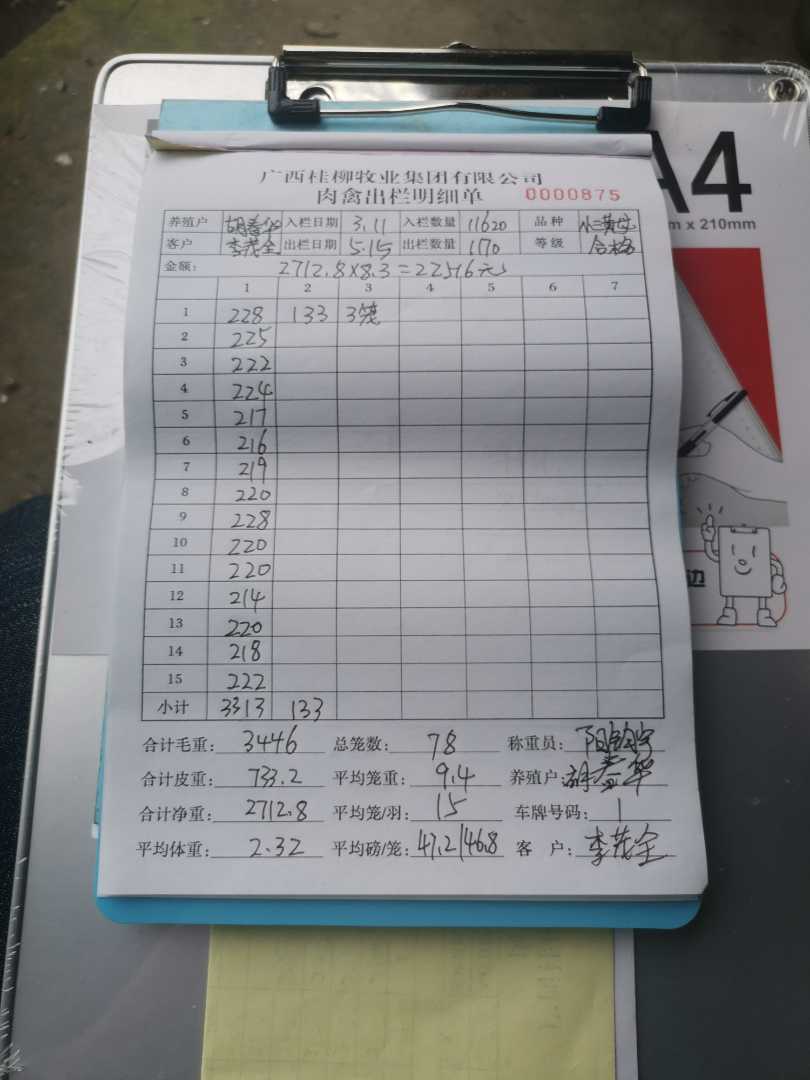 广西桂柳牧业集团有限公司
肉禽出栏明细单 0000875
养殖户 胡春华 入栏日期 3.11 入栏数量 11620 品种 小三黄
客户 李茂全 出栏日期 5.15 出栏数量 1170 等级 合格
金额: 2712.8×8.3=22516元
1 2 3 4 5 6 7
1 228 133 3笼
2 225
3 222
4 224
5 217
6 216
7 219
8 220
9 228
10 220
11 220
12 214
13 220
14 218
15 222
小计 3313 133
合计毛重: 3446 总笼数: 78 称重员:
合计皮重: 733.2 平均笼重: 9.4 养殖户: 胡春华
合计净重: 2712.8 平均笼/羽: 15 车牌号码: 1
平均体重: 2.32 平均磅/笼: 47.2/46.8 客 户: 李茂全
A4
m x 210mm
边